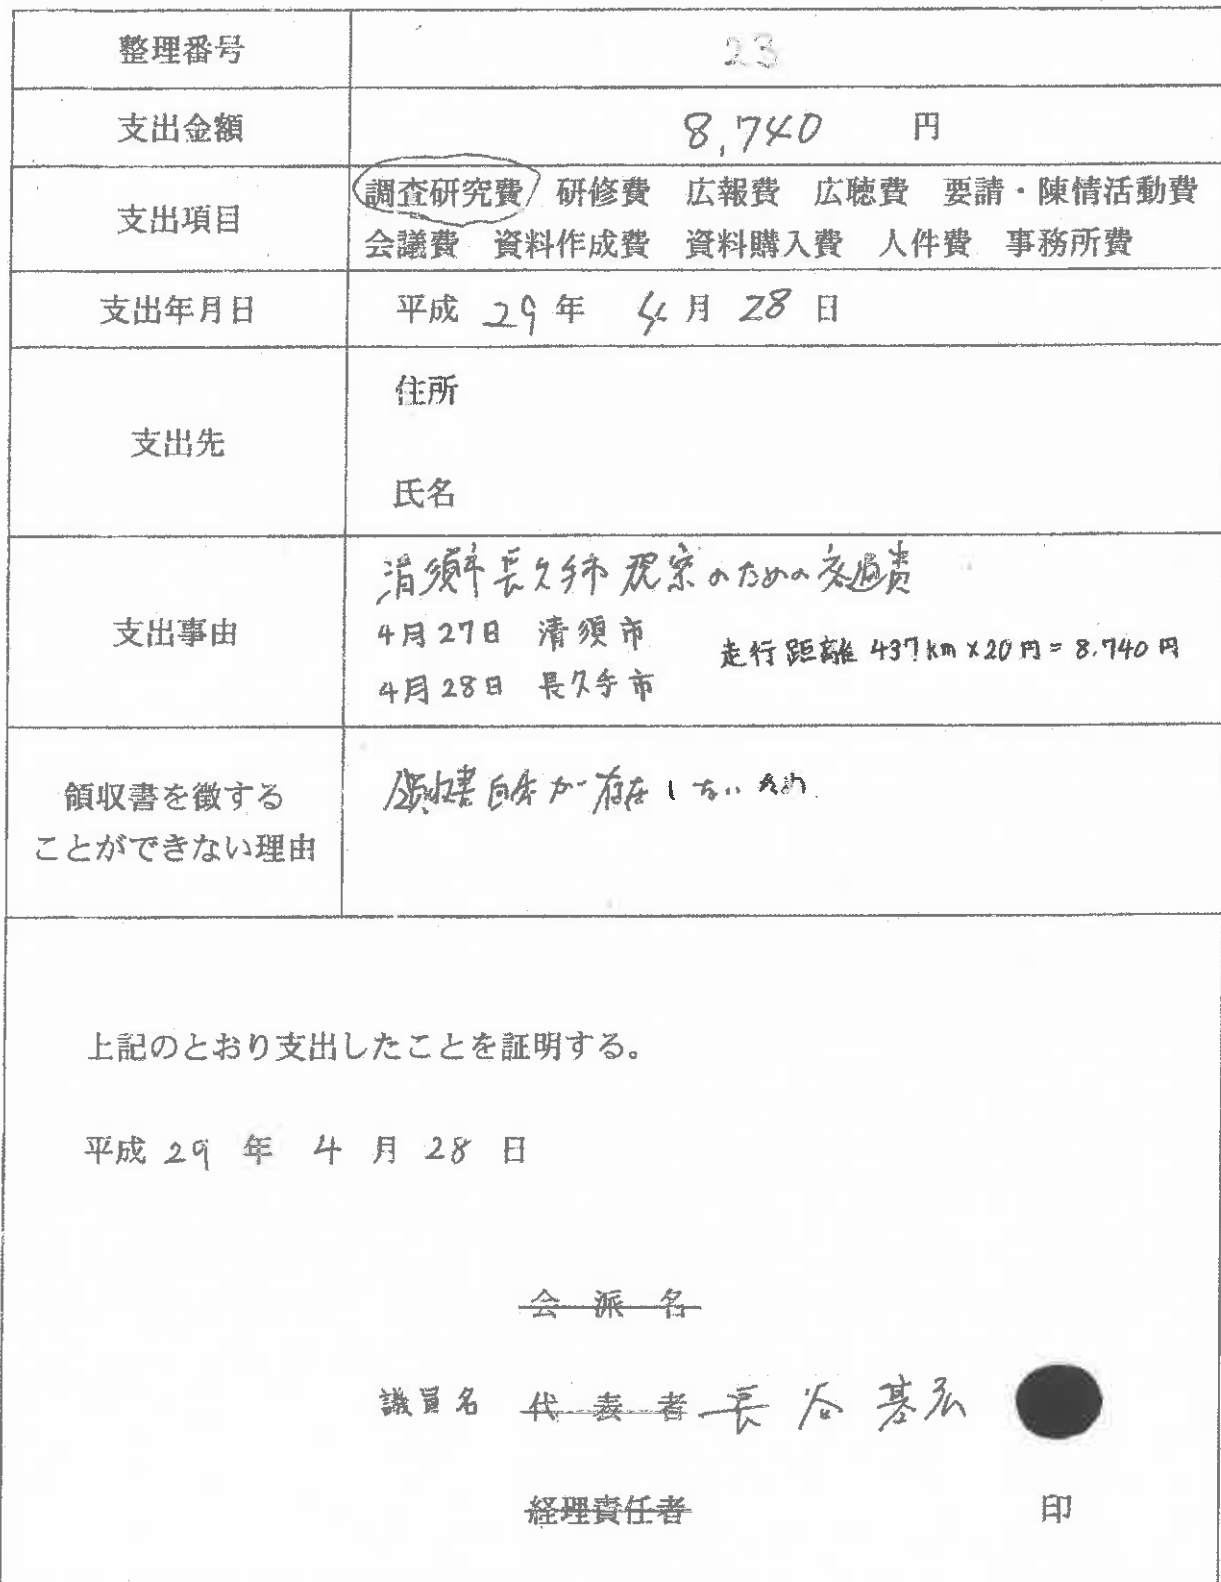 整理番号 23
支出金額 8,740 円
支出項目 調査研究費 研修費 広報費 広聴費 要請・陳情活動費
会議費 資料作成費 資料購入費 人件費 事務所費
支出年月日 平成 29 年 4 月 28 日
支出先 住所
氏名
支出事由 清須市長久手市視察のための交通費
4月27日 清須市
走行距離 437km×20円=8.740円
4月28日 長久手市
領収書を徴する
ことができない理由
領収書自体が存在しないため
上記のとおり支出したことを証明する。
平成 29 年 4 月 28 日
会派名
議員名 代表者 長谷基弘
経理責任者 印